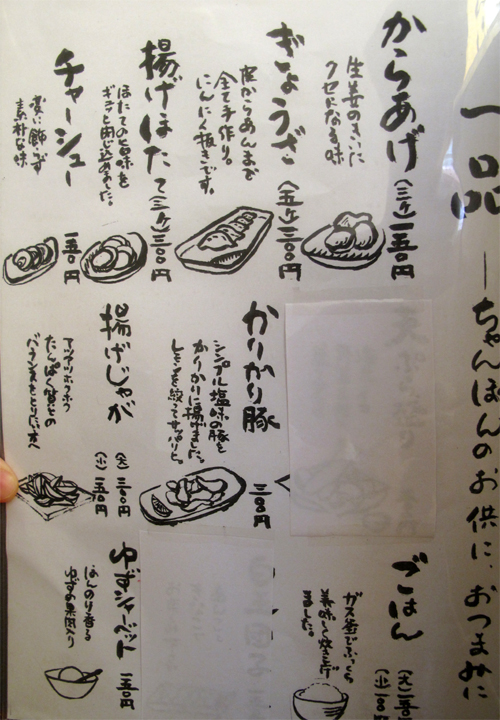 一品
ちゃんぽんのお供に、おつまみに
からあげ
(三ケ)一五〇円
生姜のきいた
クセになる味
ぎょうざ
(五ケ)三〇〇円
皮からあんまで
全て手作り。
にんにく抜きです。
揚げほたて
(三ケ)三〇〇円
ほたての旨味を
ギュッと閉じ込めました。
チャーシュー
一五〇円
変に飾らず
素朴な味
かりかり豚
三〇〇円
シンプル塩味の豚を
かりかりに揚げました。
レモンを絞ってサッパリと。
揚げじゃが
(大)三〇〇円
(小)
アツアツホクホク
ごはん
(大)
(小)一〇〇円
ガス釜でふっくら
美味しく炊き上げ
ました。
ゆずシャーベット
一五〇円
ほんのり香る
ゆずの果肉入り